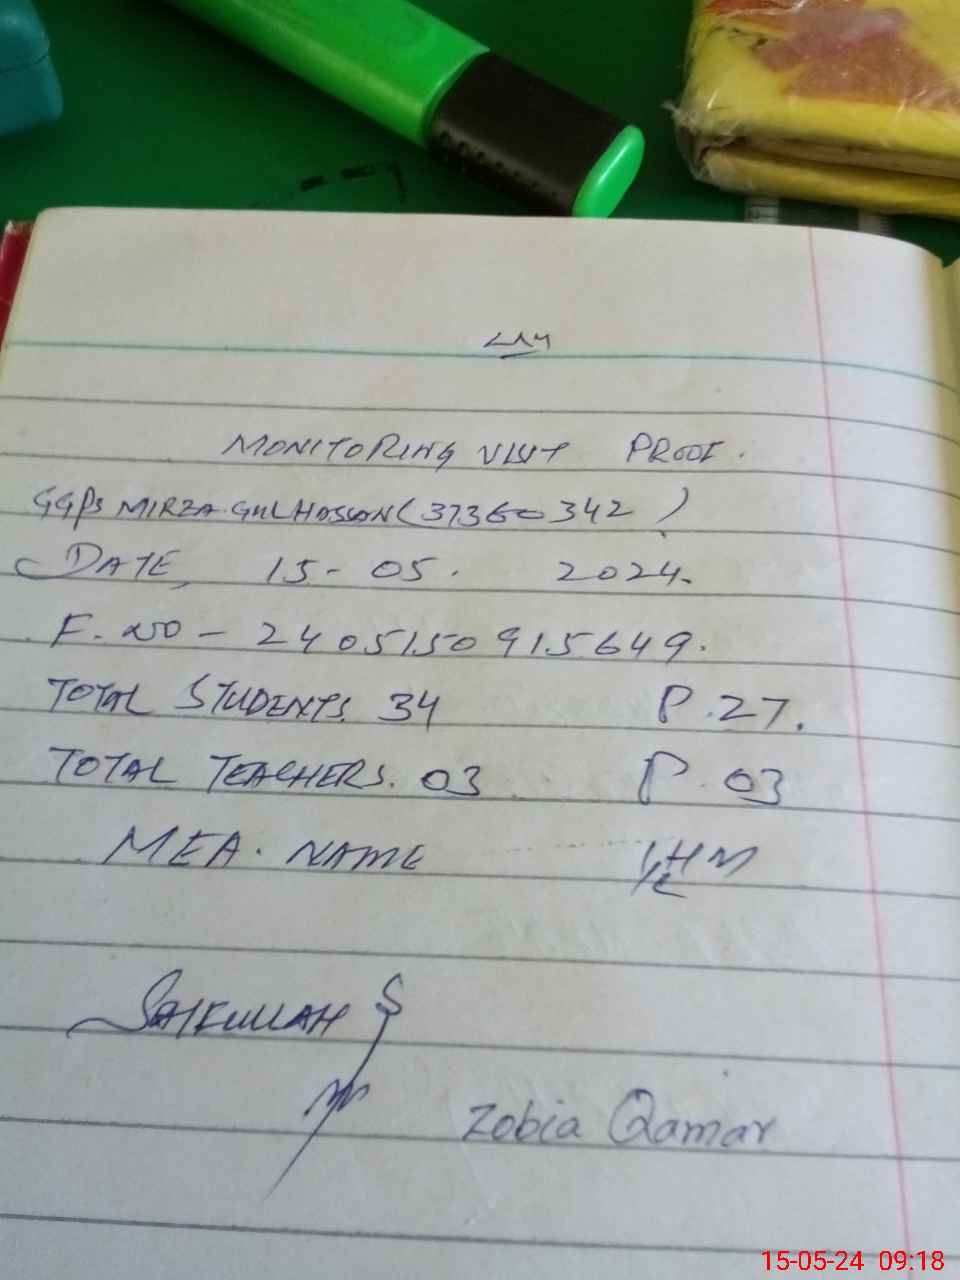 MONITORING VISIT PROOF.
GGPS MIRZA GUL HASSAN (37360342)
DATE, 15-05. 2024.
F. NO - 2405150915649.
TOTAL STUDENTS. 34 P. 27.
TOTAL TEACHERS. 03 P. 03
MEA. NAME I/C HM
SAIFULLAH
Zobia Qamar
15-05-24 09:18